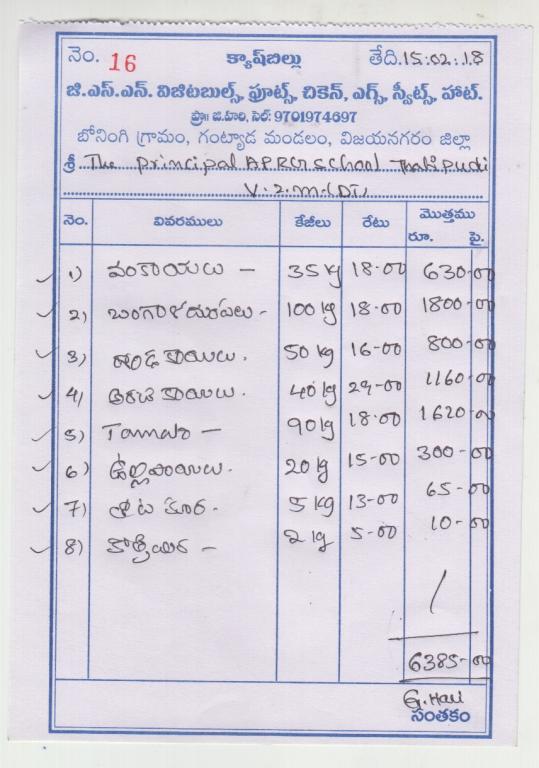 నెం. 16 క్యాష్‌బిల్లు తేది.15:02:18
జి.ఎస్.ఎన్. విజిటబుల్స్, ఫ్రూట్స్, చికెన్, ఎగ్స్, స్వీట్స్, హాట్.
ప్రొ॥ జి.హరి, సెల్: 9701974697
బోనింగి గ్రామం, గంట్యాడ మండలం, విజయనగరం జిల్లా
శ్రీ The principal APRCrSchool Thatipudi
V.Z.M.(DT)
నెం. వివరములు కేజీలు రేటు మొత్తము
రూ. పై.
1) వంకాయలు - 35 kg 18-00 630-00
2) బంగాళదుంపలు - 100 kg 18-00 1800-00
3) దొండకాయలు. 50 kg 16-00 800-00
4) అరటికాయలు. 40 kg 29-00 1160-00
5) Tamato - 90 kg 18-00 1620-00
6) ఉల్లిపాయలు. 20 kg 15-00 300-00
7) తోటకూర. 5 kg 13-00 65-00
8) కొత్తిమీర - 2 kg 5-00 10-00
6385-00
G. Hari
సంతకం